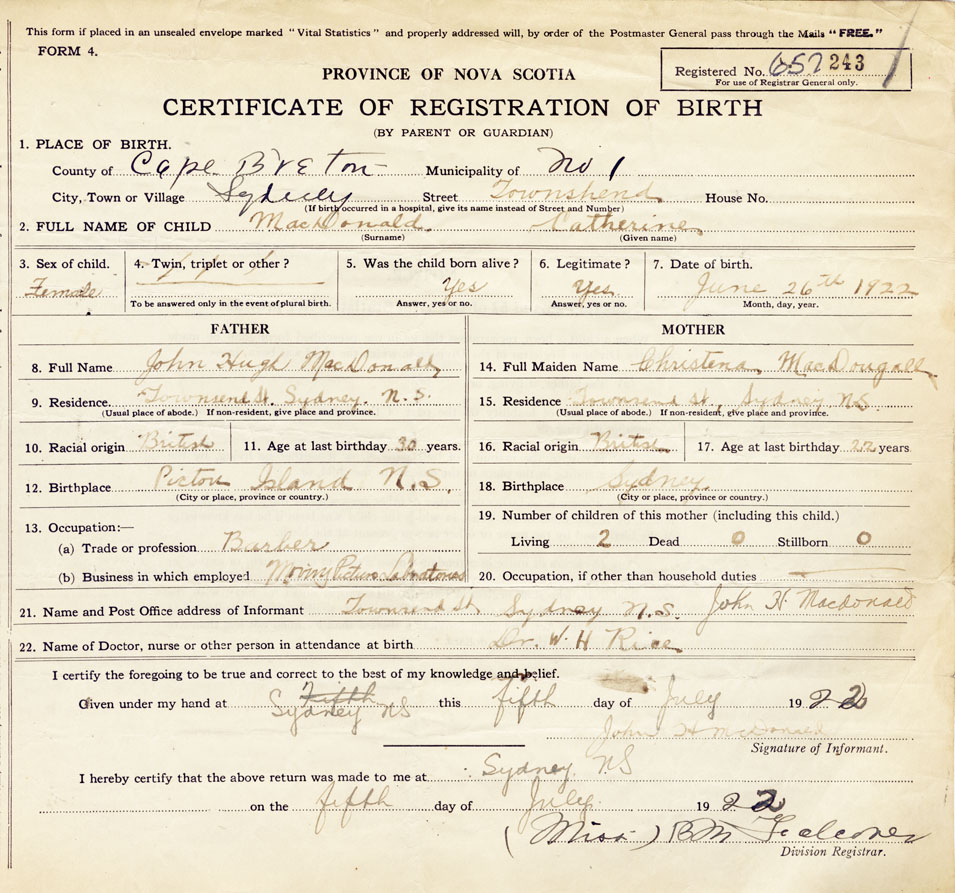 This form if placed in an unsealed envelope marked "Vital Statistics" and properly addressed will, by order of the Postmaster General pass through the Mails "FREE."
FORM 4.
Registered No. 657 243
For use of Registrar General only.
PROVINCE OF NOVA SCOTIA
CERTIFICATE OF REGISTRATION OF BIRTH
(BY PARENT OR GUARDIAN)
1. PLACE OF BIRTH.
County of Cape Breton Municipality of No 1
City, Town or Village Sydney Street Townshend House No.
(If birth occurred in a hospital, give its name instead of Street and Number)
2. FULL NAME OF CHILD MacDonald Catherine
(Surname) (Given name)
3. Sex of child. 4. Twin, triplet or other? 5. Was the child born alive? 6. Legitimate? 7. Date of birth.
Female Yes Yes June 26th 1922
To be answered only in the event of plural birth. Answer, yes or no. Answer, yes or no. Month, day, year.
FATHER MOTHER
8. Full Name John Hugh MacDonald 14. Full Maiden Name Christena MacDougall
9. Residence. Townsend St. Sydney. N.S. 15. Residence Townsend St., Sydney NS.
(Usual place of abode.) If non-resident, give place and province. (Usual place of abode.) If non-resident, give place and province.
10. Racial origin British 11. Age at last birthday 30 years. 16. Racial origin British 17. Age at last birthday 22 years
12. Birthplace Picton Island N.S. 18. Birthplace Sydney
(City or place, province or country.) (City or place, province or country.)
13. Occupation:— 19. Number of children of this mother (including this child.)
(a) Trade or profession Barber Living 2 Dead 0 Stillborn 0
(b) Business in which employed 20. Occupation, if other than household duties
21. Name and Post Office address of Informant Townsend St Sydney N.S. John H. Macdonald
22. Name of Doctor, nurse or other person in attendance at birth Dr. W. H Rice
I certify the foregoing to be true and correct to the best of my knowledge and belief.
Given under my hand at Fifth Sydney NS this fifth day of July 1922
John H McDonald
Signature of Informant.
I hereby certify that the above return was made to me at Sydney NS
on the fifth day of July 1922
(Miss) B M Falconer
Division Registrar.